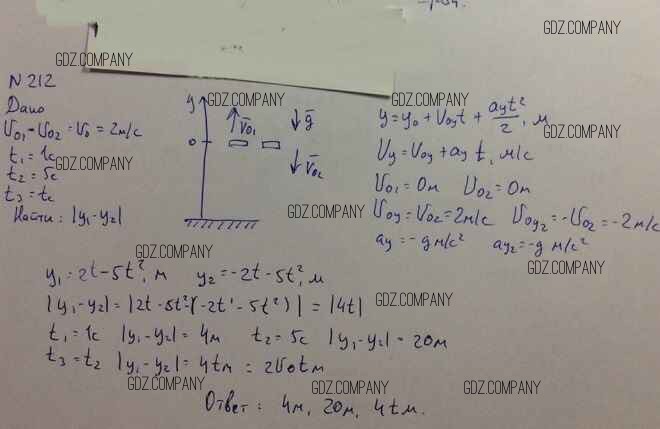 GDZ.COMPANY
GDZ.COMPANY
N 212
Дано
V₀₁ = V₀₂ = V₀ = 2м/с
t₁ = 1с
GDZ.COMPANY
t₂ = 5с
t₃ = tс
Найти: |y₁-y₂|
GDZ.COMPANY
y
0
V̄₀₁
ḡ
V̄₀₂
GDZ.COMPANY
GDZ.COMPANY
y = y₀ + V₀yt + ayt²/2, м
GDZ.COMPANY
Vy = V₀y + ay t, м/с
V₀₁ = 0м V₀₂ = 0м
V₀y = V₀₂ = 2м/с V₀y₂ = -V₀₂ = -2м/с
ay = -g м/с² ay₂ = -g м/с²
GDZ.COMPANY
GDZ.COMPANY
y₁ = 2t - 5t², м y₂ = -2t - 5t², м
|y₁-y₂| = |2t - 5t² - (-2t - 5t²)| = |4t|
GDZ.COMPANY
t₁ = 1с |y₁-y₂| = 4м t₂ = 5с |y₁-y₂| = 20м
t₃ = t₂ |y₁-y₂| = 4tм = 2V₀tм
GDZ.COMPANY GDZ.COMPANY GDZ.COMPANY
Ответ: 4м, 20м, 4tм.